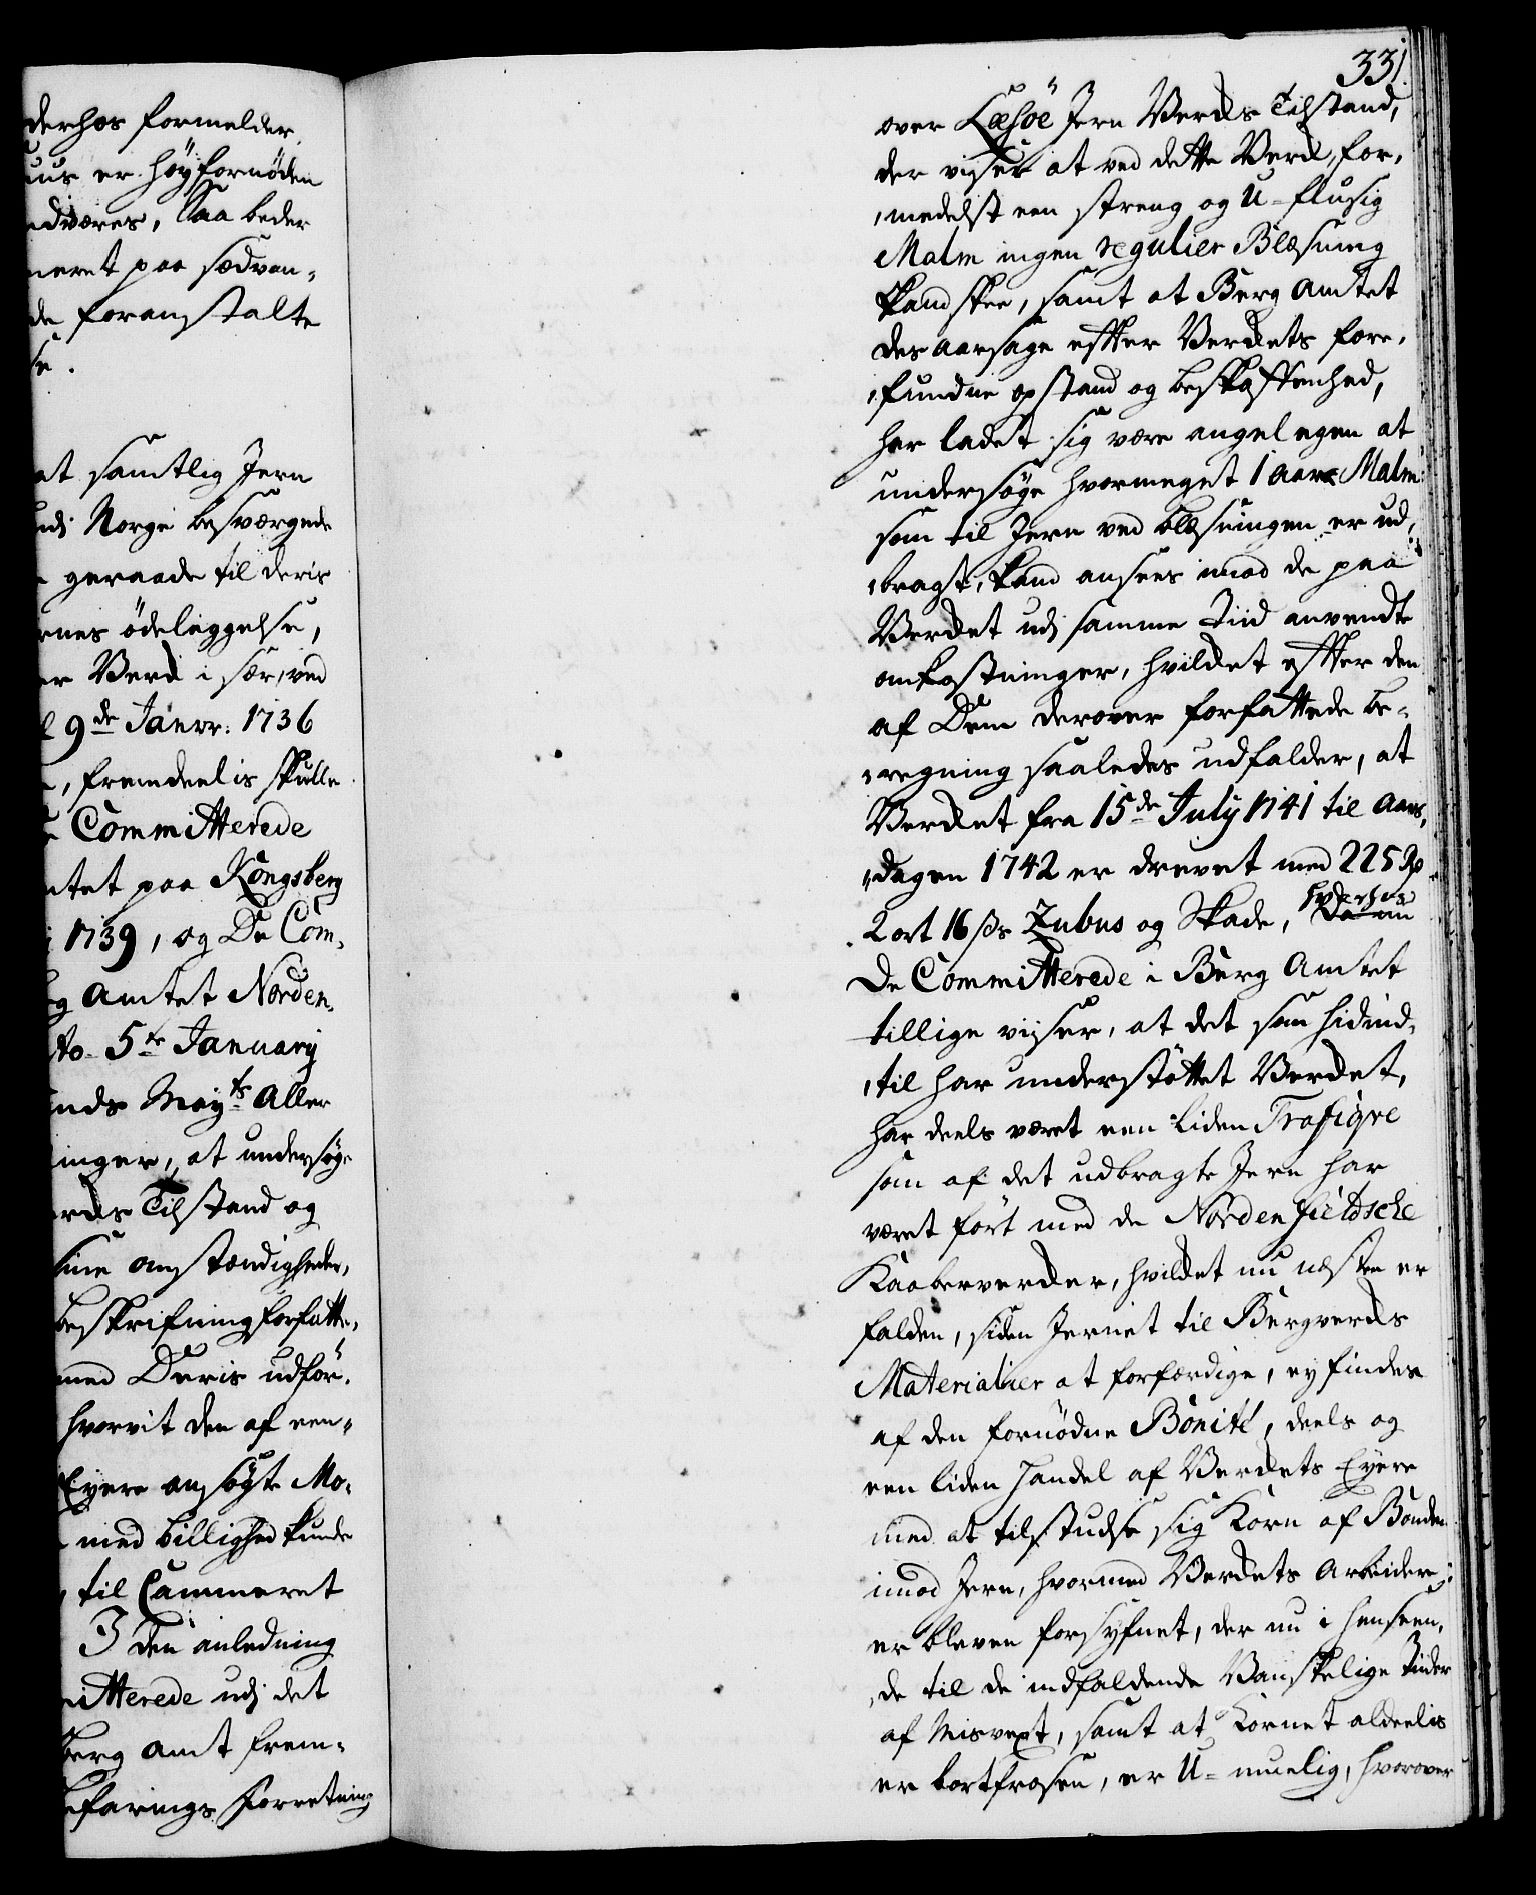 derhos formelder,
uus er höyfornöden
dværes, Saa beder
neret paa sædvan-
de foranstalte
se.
at samtlig Jern
udj Norge besværgede
geraade til deris
rnes ödeleggelse,
er Verck i sær, ved
9de Janvr: 1736
, fremdeelis skulle
Committerede
ntet paa Kongsberg
1739, og De Com-
g Amtet Norden-
to 5te January
nds Mayts Aller
inger, at undersöge
rcks Tilstand og
sine omstændigheder,
beskrifning forfatte,
med Deris udför-
hvorvit den af een-
Eyere ansögte Mo-
med billighed kunde
til Cammeret
I den anledning
itterede udj det
berg amt frem-
efarings Forretning
331.
over Læsöe Jern Vercks Tilstand,
der viser at ved dette Verck, for-
medelst een streng og U-flusig
Malm ingen regulier Blæsning
kand skee, samt at Berg Amtet
des aarsage efter Verckets fore-
fundne opstand og beskaffenhed,
har ladet sig være angelegen at
undersöge hvormeget 1 Aars Malm
som til Jern ved blæsningen er ud-
bragt, kand ansees imod de paa
Vercket udj samme Tiid anvendte
omkostninger, hvilcket efter den
af Dem derover forfattede be-
regning saaledes udfalder, at
Vercket fra 15de July 1741 til Aars-
dagen 1742 er drevet med 225 Rd
2 ort 16 s Zubus og Skade, hvorhos
De Committerede i Berg Amtet
tillige viser, at det som hidind-
til har understöttet Vercket,
har deels været een liden Trafiqve
som af det udbragte Jern har
været fört med de Nordenfieldsche
Kaabervercker, hvilcket nu næsten er
falden, siden Jernet til Bergvercks
Materialier at forfærdige, ey findes
af den fornödne Bonité, deels og
een liden Handel af Verckets Eyere
med at tilstudse sig Korn af Bonden
imod Jern, hvormed Verckets Arbeider
er bleven forsyfnet, der nu i henseen-
de til de indfaldende Vanskelige Tiider
af Misvext, samt at Kornet aldeelis
er bortfrosen, er U-muelig, hvorover